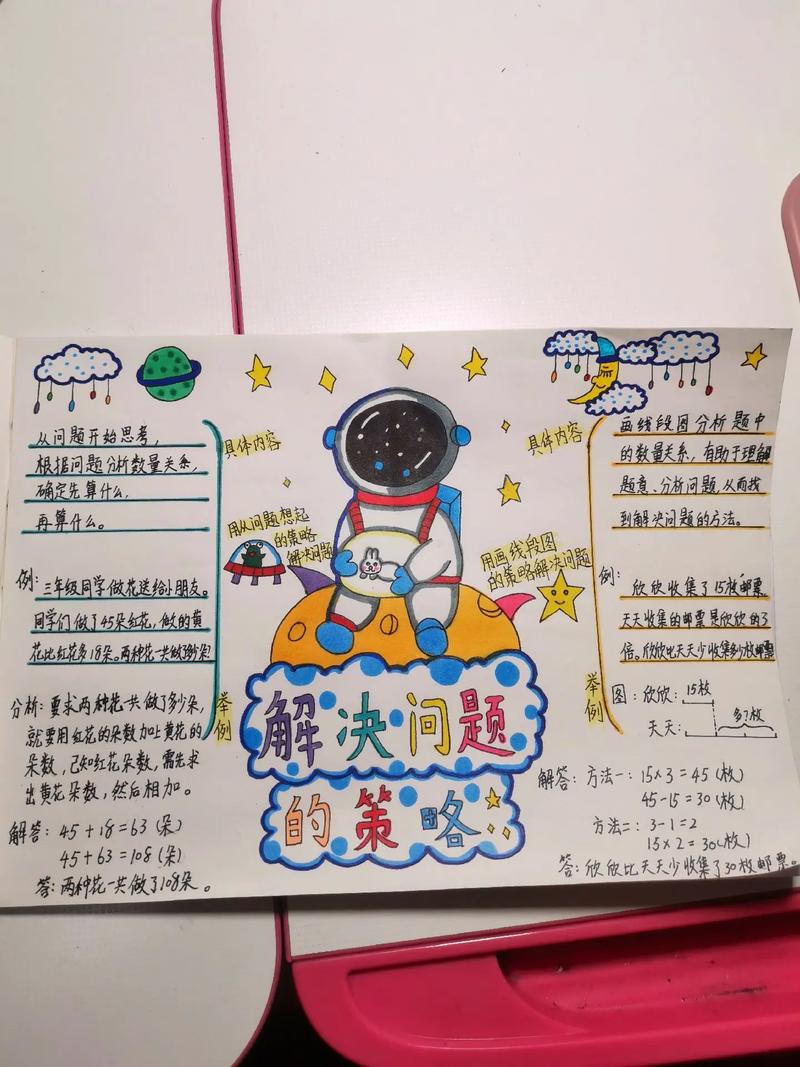 从问题开始思考，
根据问题分析数量关系，
确定先算什么，
再算什么。
具体内容
用从问题想起
的策略
解决问题
例：三年级同学做花送给小朋友。
同学们做了45朵红花，做的黄
花比红花多18朵。两种花一共做了多少朵?
举例
分析：要求两种花一共做了多少朵，
就要用红花的朵数加上黄花的
朵数，已知红花朵数，需先求
出黄花朵数，然后相加。
解答：45+18=63（朵）
45+63=108（朵）
答：两种花一共做了108朵。
解决问题
的策略
画线段图分析题中
的数量关系，有助于理解
题意、分析问题，从而找
到解决问题的方法。
具体内容
用画线段图
的策略解决问题
例：欣欣收集了15枚邮票
天天收集的邮票是欣欣的3
倍。欣欣比天天少收集多少枚邮票
举例
图：欣欣：15枚
天天：多?枚
解答：方法一：15×3=45（枚）
45-15=30（枚）
方法二：3-1=2
15×2=30（枚）
答：欣欣比天天少收集了30枚邮票。